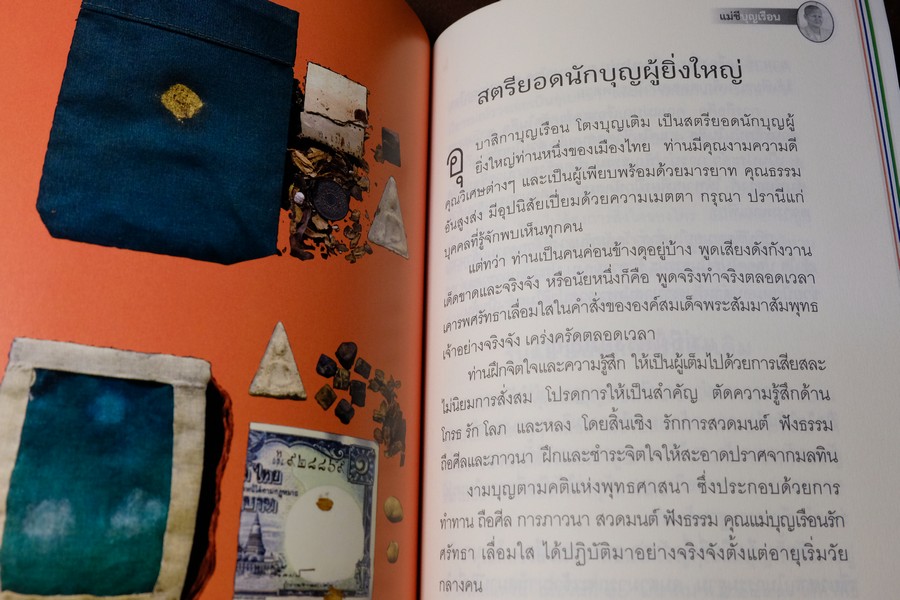 แม่ชีบุญเรือน
สตรียอดนักบุญผู้ยิ่งใหญ่
อุบาสิกาบุญเรือน โตงบุญเติม เป็นสตรียอดนักบุญผู้
ยิ่งใหญ่ท่านหนึ่งของเมืองไทย ท่านมีคุณงามความดี
คุณวิเศษต่างๆ และเป็นผู้เพียบพร้อมด้วยมารยาท คุณธรรม
อันสูงส่ง มีอุปนิสัยเปี่ยมด้วยความเมตตา กรุณา ปรานีแก่
บุคคลที่รู้จักพบเห็นทุกคน
แต่ทว่า ท่านเป็นคนค่อนข้างดุอยู่บ้าง พูดเสียงดังกังวาน
เด็ดขาดและจริงจัง หรือนัยหนึ่งก็คือ พูดจริงทำจริงตลอดเวลา
เคารพศรัทธาเลื่อมใสในคำสั่งขององค์สมเด็จพระสัมมาสัมพุทธ
เจ้าอย่างจริงจัง เคร่งครัดตลอดเวลา
ท่านฝึกจิตใจและความรู้สึก ให้เป็นผู้เต็มไปด้วยการเสียสละ
ไม่นิยมการสั่งสม โปรดการให้เป็นสำคัญ ตัดความรู้สึกด้าน
โกรธ รัก โลภ และหลง โดยสิ้นเชิง รักการสวดมนต์ ฟังธรรม
ถือศีลและภาวนา ฝึกและชำระจิตใจให้สะอาดปราศจากมลทิน
งามบุญตามคติแห่งพุทธศาสนา ซึ่งประกอบด้วยการ
ทำทาน ถือศีล การภาวนา สวดมนต์ ฟังธรรม คุณแม่บุญเรือนรัก
ศรัทธา เลื่อมใส ได้ปฏิบัติมาอย่างจริงจังตั้งแต่อายุเริ่มวัย
กลางคน
ไทย